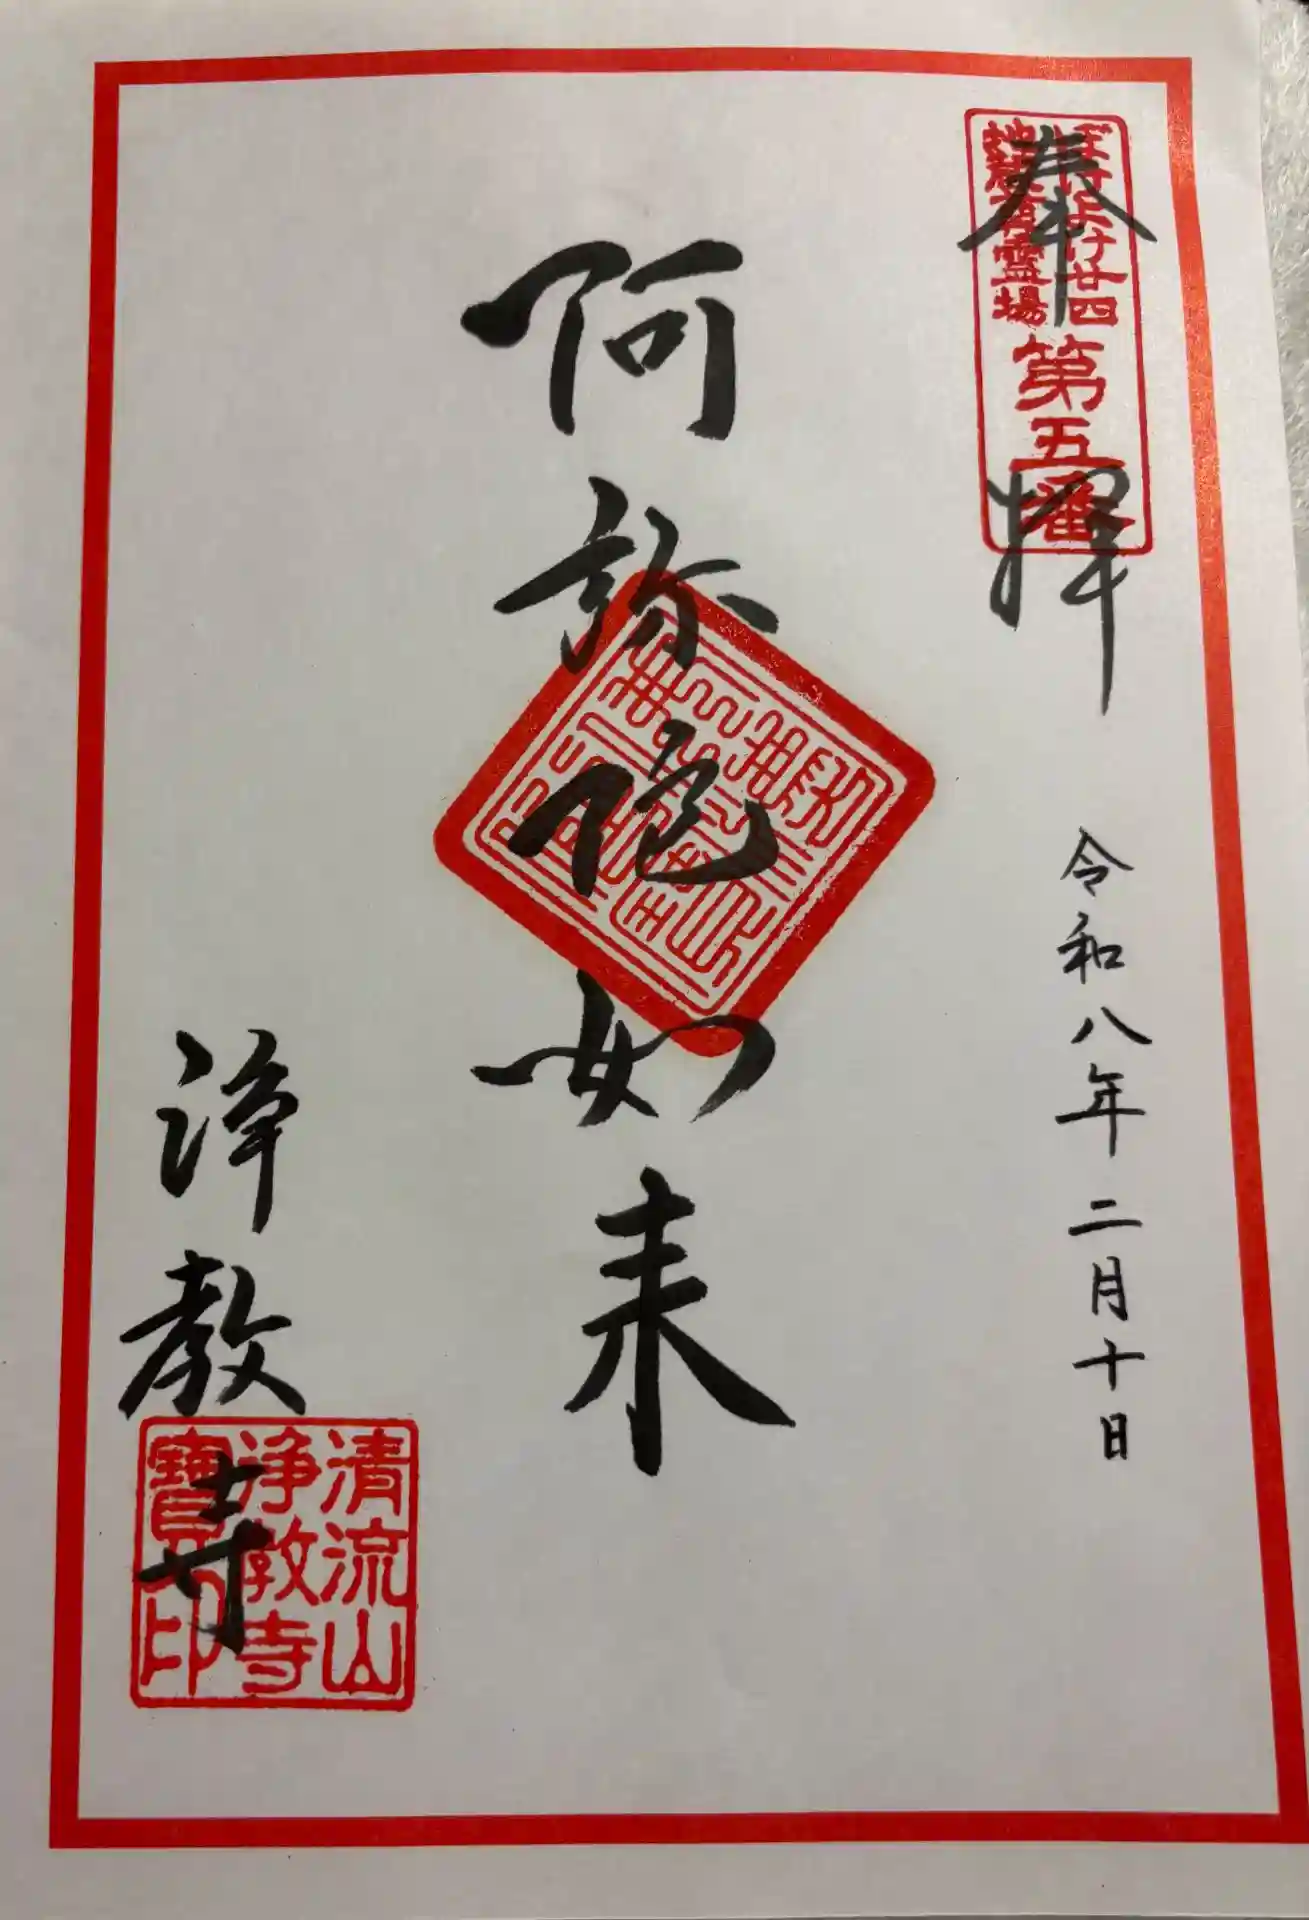 奉拝
ぼけよけ廿四
地蔵尊霊場
第五番
令和八年二月十日
阿弥陀如来
浄教寺
清流山
浄教寺
寶印